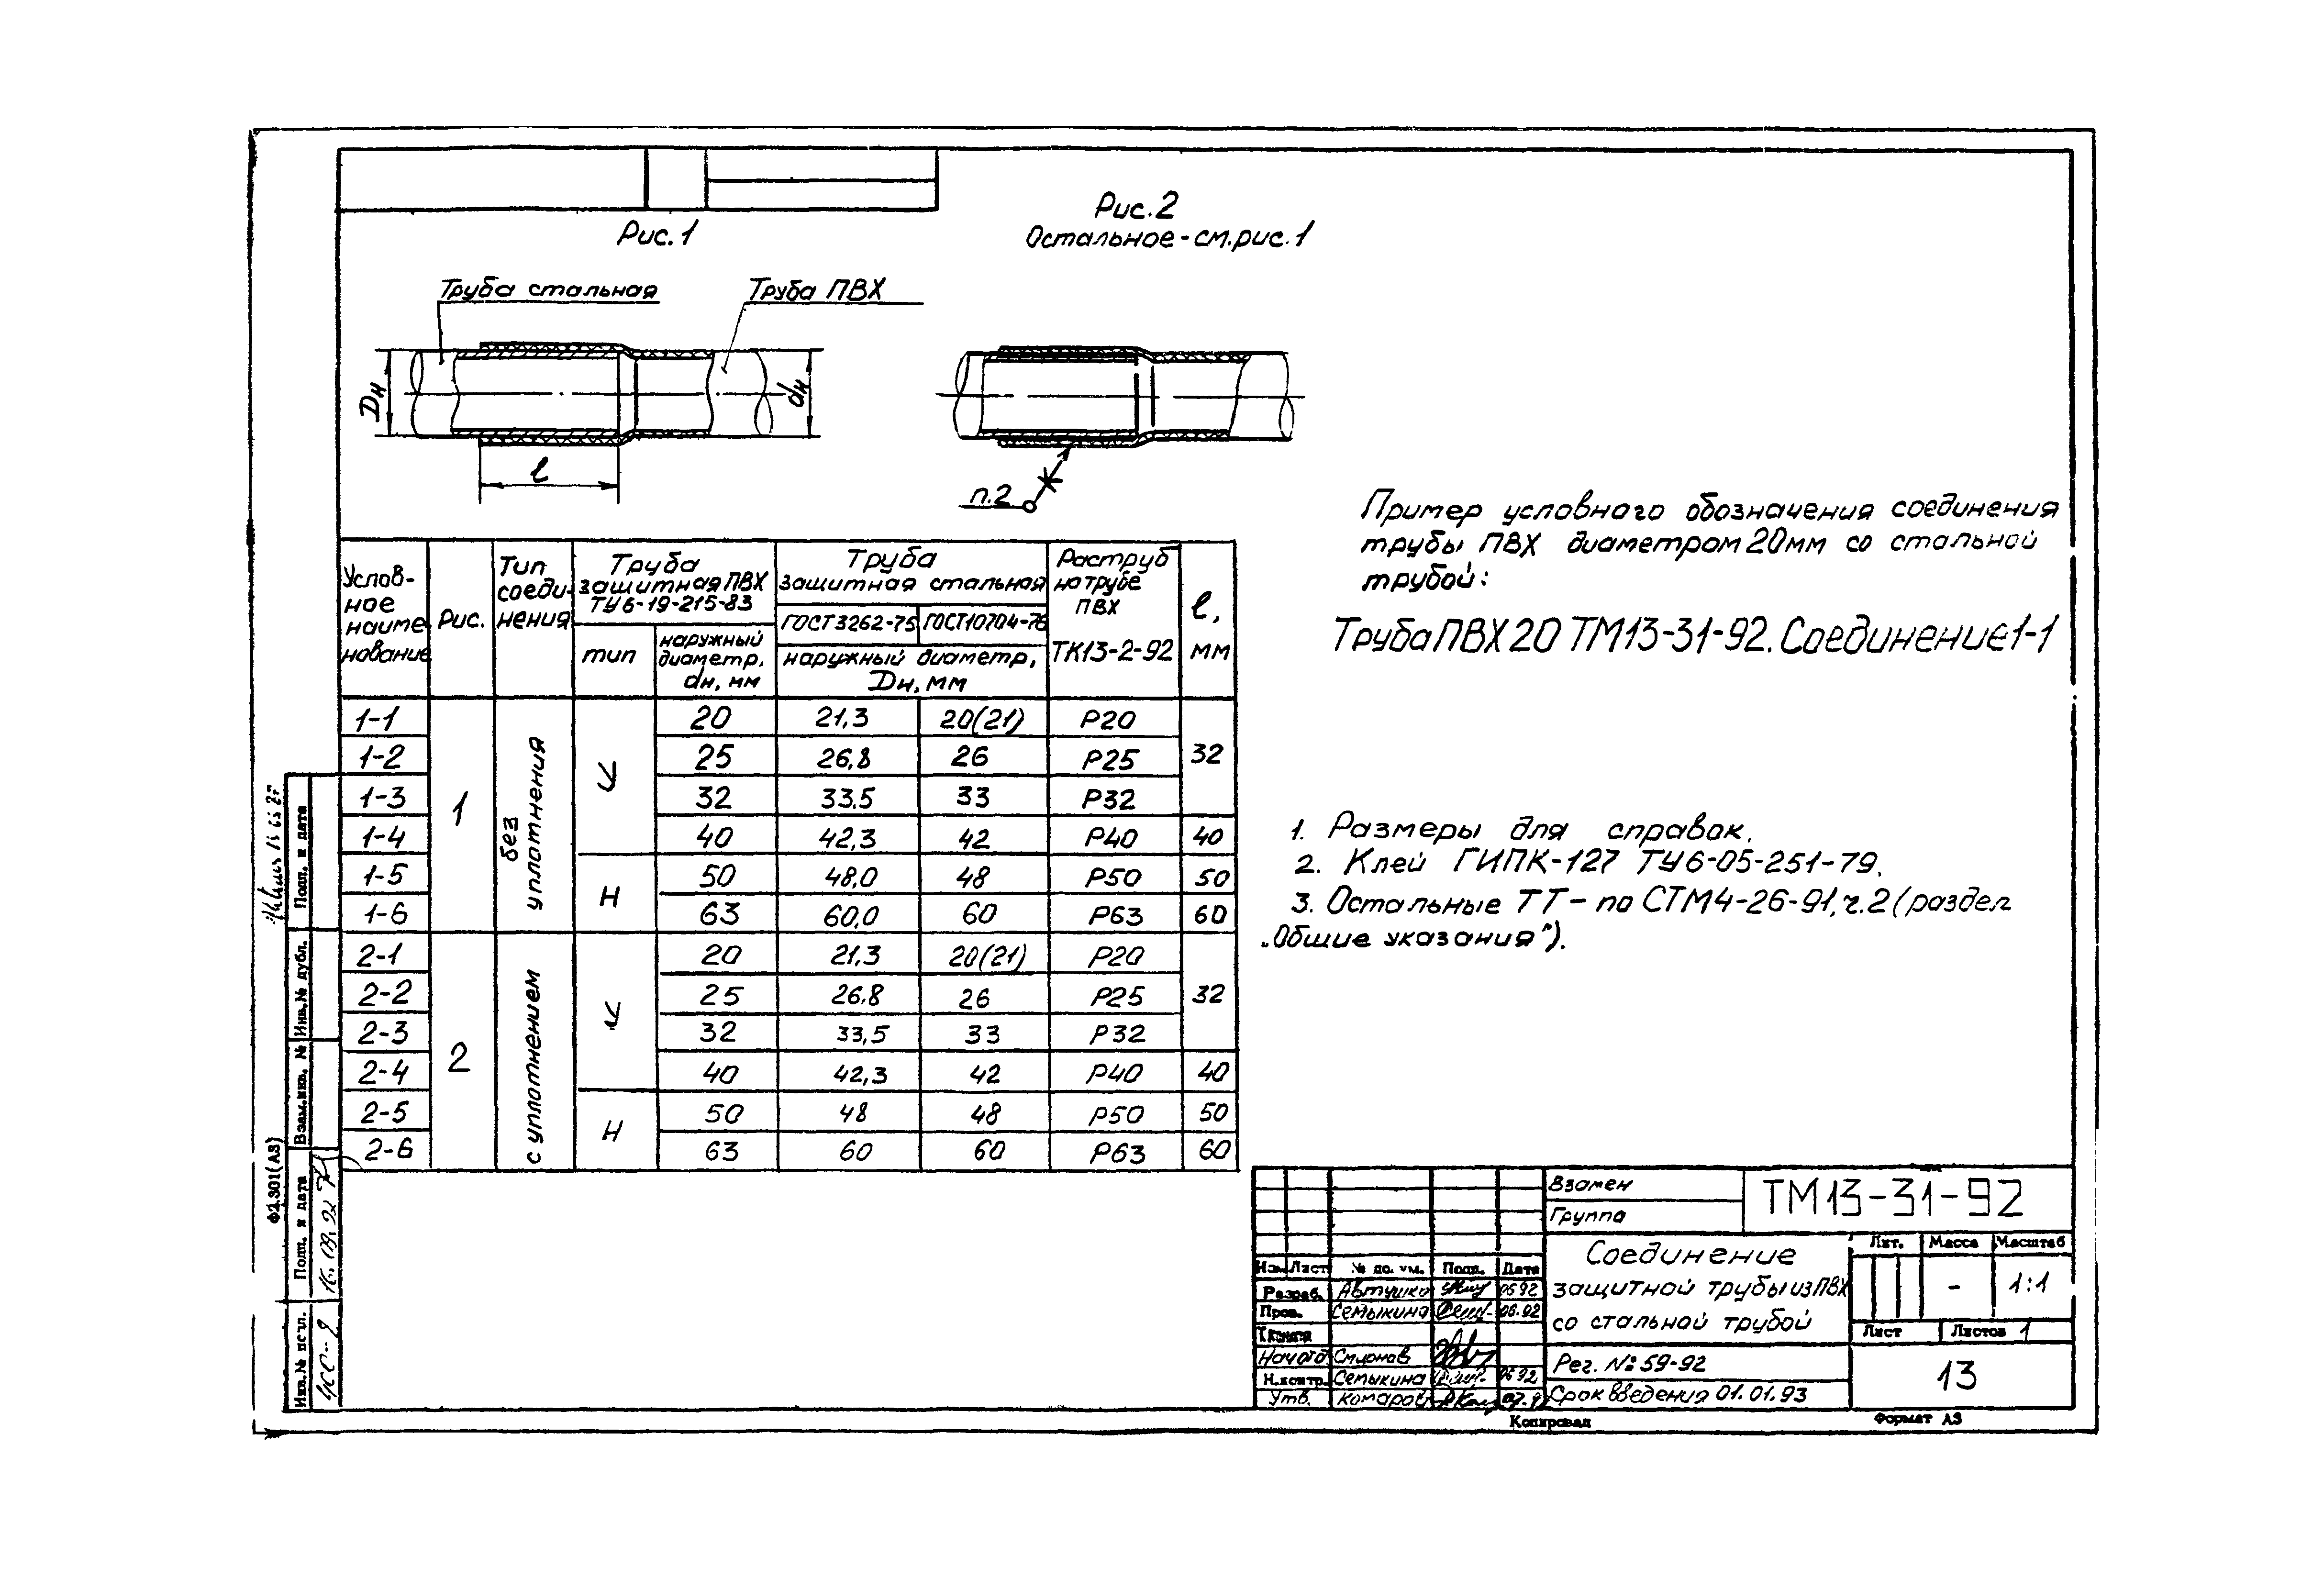 Рис.1
Рис.2
Остальное-см.рис.1
Труба стальная
Труба ПВХ
Dн
dн
ℓ
п.2
Пример условного обозначения соединения
трубы ПВХ диаметром 20мм со стальной
трубой:
Труба ПВХ 20 ТМ13-31-92. Соединение 1-1
1. Размеры для справок.
2. Клей ГИПК-127 ТУ6-05-251-79.
3. Остальные ТТ - по СТМ4-26-91, ч.2 (раздел
„Общие указания").
Услов-
ное
наиме
нование
Рис.
Тип
соеди-
нения
Труба
защитная ПВХ
ТУ6-19-215-83
тип
наружный
диаметр,
dн, мм
Труба
защитная стальная
ГОСТ 3262-75 ГОСТ10704-76
наружный диаметр,
Dн, мм
Раструб
на трубе
ПВХ
ТК13-2-92
ℓ,
мм
1
без
уплотнения
У
Н
1-1 20 21,3 20(21) Р20
1-2 25 26,8 26 Р25 32
1-3 32 33,5 33 Р32
1-4 40 42,3 42 Р40 40
1-5 50 48,0 48 Р50 50
1-6 63 60,0 60 Р63 60
2
с уплотнением
У
Н
2-1 20 21,3 20(21) Р20
2-2 25 26,8 26 Р25 32
2-3 32 33,5 33 Р32
2-4 40 42,3 42 Р40 40
2-5 50 48 48 Р50 50
2-6 63 60 60 Р63 60
Подп. и дата
Инв.№ дубл.
Взам.инв. №
Подп. и дата
Инв.№ подл.
Ф2.301(А3)
Взамен
Группа
ТМ13-31-92
Соединение
защитной трубы из ПВХ
со стальной трубой
Лит. Масса Масштаб
- 1:1
Лист Листов 1
Изм Лист № докум. Подп. Дата
Разраб. Автушко 06 92
Пров. Семыкина 06.92
Т.контр
Нач отд. Смирнов
Н.контр. Семыкина 06 92
Утв. Комаров
Рег. №59-92
Срок введения 01.01.93
13
Копировал
Формат А3